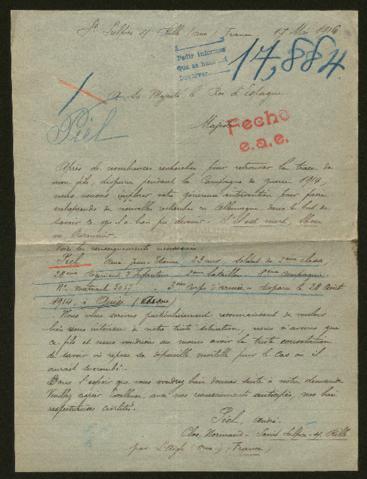 St Sulpice s/ Rille Orne France 17 Mai 1916
Pedir informes
que se han
14,884.
1
A Sa Majesté le Roi d'Espagne
Piel
Majesté
Fecho
e.a.e.
Après de nombreuses recherches pour retrouver la trace de
mon fils, disparu pendant la Campagne de guerre 1914,
nous venons implorer votre généreuse intervention pour faire
entreprendre de nouvelles recherches en Allemagne dans le but de
savoir ce qu'il a bien pu devenir. S'il est mort,
ou Prisonnier.
Voici les renseignements
Piel jean Etienne 23 ans, soldat de 2me classe,
28me régiment d'Infanterie bataillon compagnie
No matricule 3037 - 3me Corps d'armée - disparu le 28 Août
1914, à Guise (Aisne)
Nous vous serons particulièrement reconnaissant de vouloir
bien vous intéresser à notre triste situation, nous n'avons que
ce fils et nous voudrions au moins avoir la triste consolation
de savoir où repose sa dépouille mortelle pour le cas où il
aurait succombé.
Dans l'espoir que vous voudrez bien donner suite à notre demande
Veuillez agréer Excellence, avec nos remerciements anticipés, nos bien
respectueuses civilités.
Piel André.
Clos Normand - Saint Sulpice s/ Rille
par L'Aigle (Orne) (France)